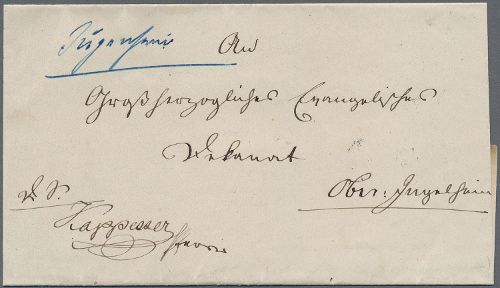 Jugenheim
An
Großherzogliches Evangelisches
Dekanat
Ober-Ingelheim
D. S.
Kappesser
Pfarrer